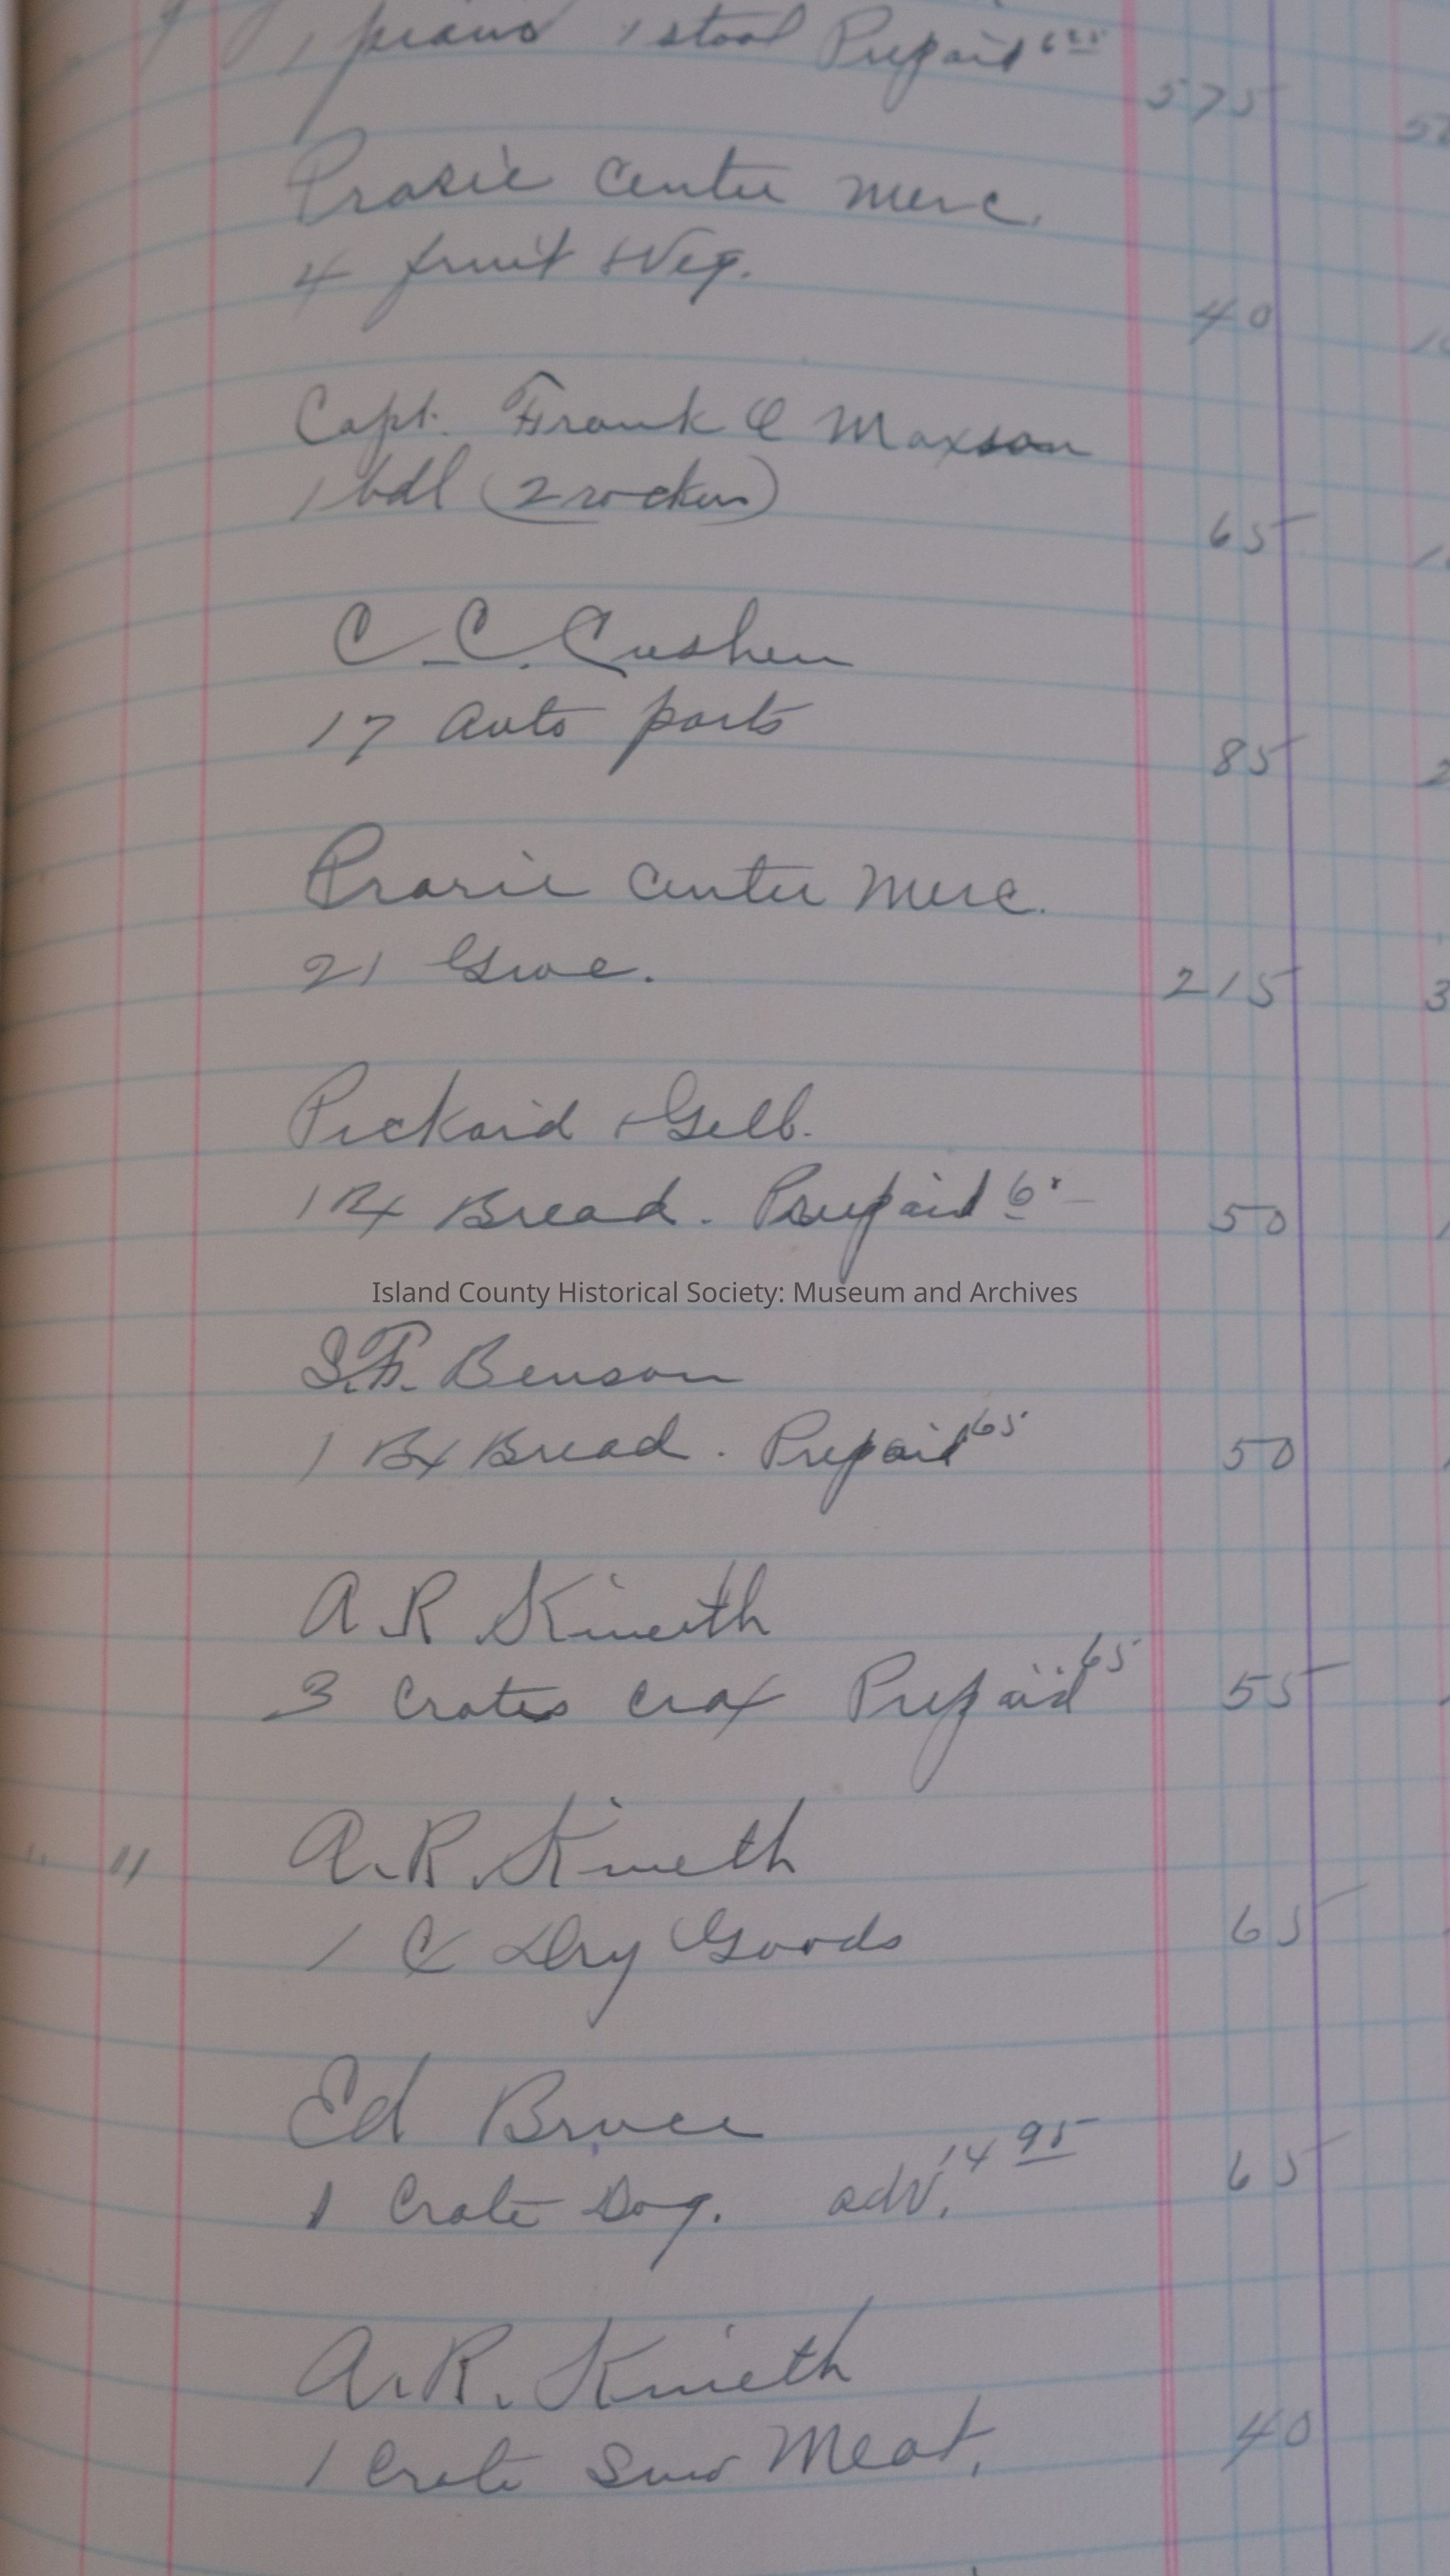 1 piano 1 stool Prepaid 6 25
575
Prarie Center Merc.
4 fruit + Veg.
40
Capt. Frank C Maxson
1 bdl (2 rockers)
65
C. C. Cushen
17 Auto parts
85
Prarie Center Merc.
21 Groc.
215
Pickard + Gelb.
1 Bx Bread. Prepaid
50
Island County Historical Society: Museum and Archives
S.F. Benson
1 Bx Bread. Prepaid 65
50
A R Kineith
3 Crates crax Prepaid 65
55
" " A. R. Kineth
1 C Dry Goods
65
Ed Bruce
1 Crate Dog. adv. 14 95
65
A. R. Kineth
1 Crate Meat.
40